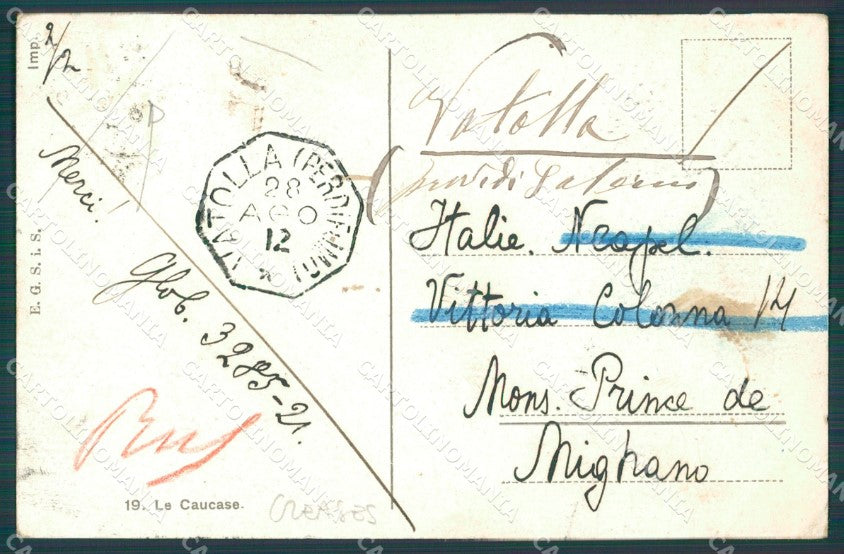 Imp.
2/2
Merci!
E. G. S. i. S.
Glob. 3285-21.
19. Le Caucase.
CREASES
VATOLLA (PERDIFUMO)
28
AGO
12
Vatolla
(prov. di Salerno)
Italie. Neapel.
Vittoria Colonna 14
Mons. Prince de
Mignano
CARTOLINOMANIA